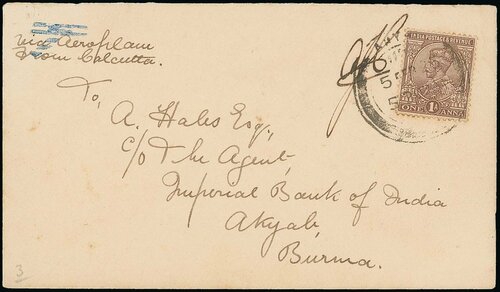 via Aeroplane
from Calcutta.
INDIA POSTAGE & REVENUE
ONE 1A ANNA
To,
A. Hales Esq,
c/o The Agent,
Imperial Bank of India
Akyab,
Burma.
3